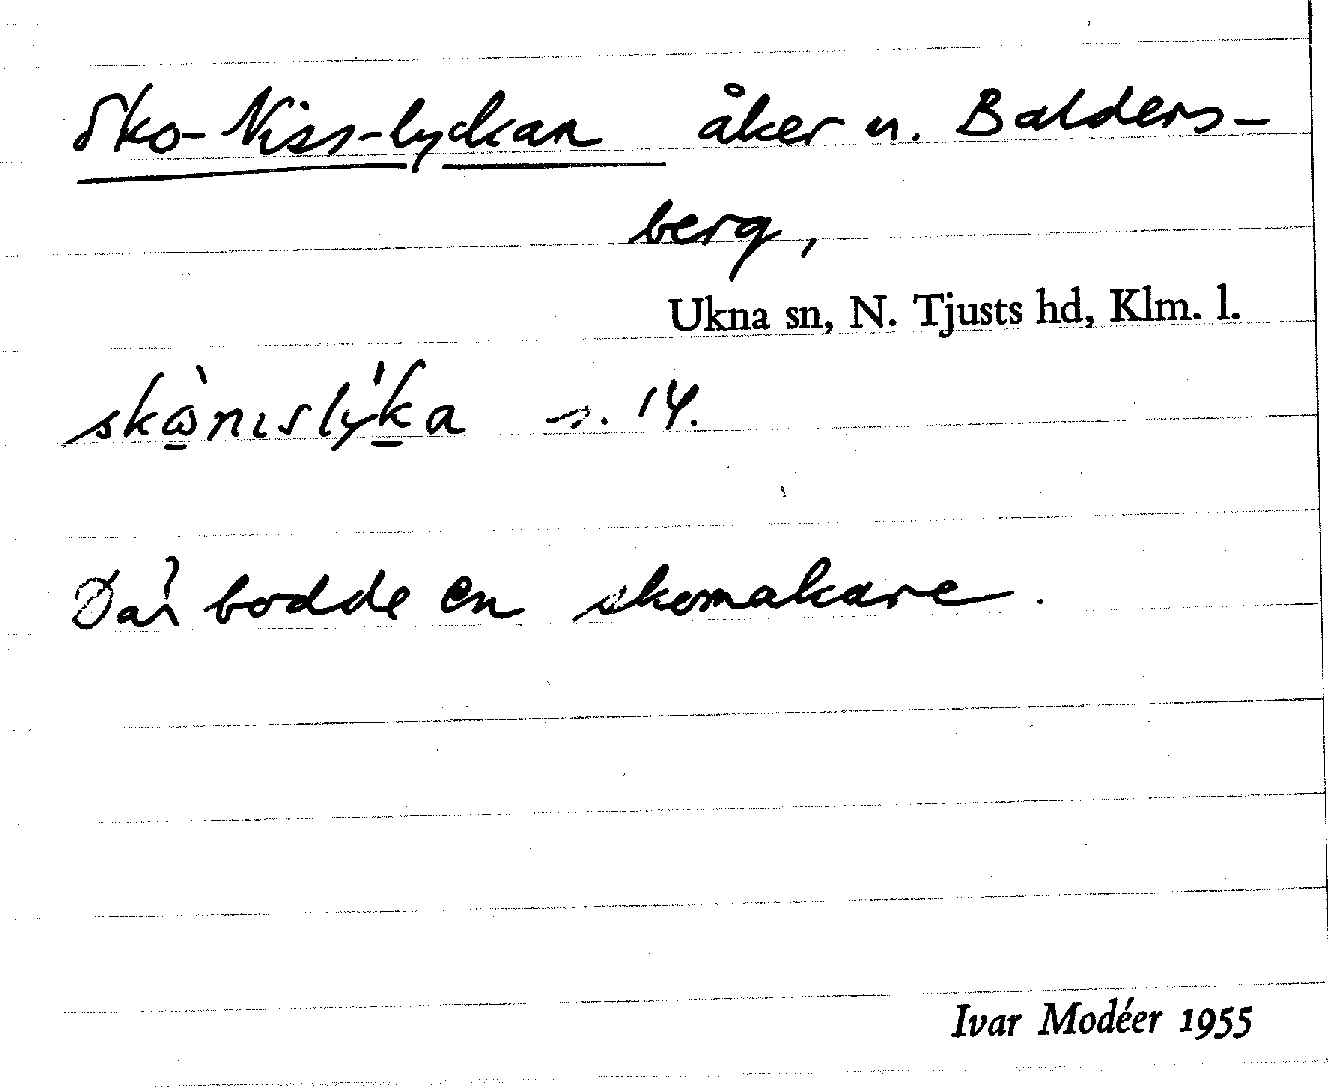 Sko-Niss-lyckan åker u. Balders-
berg,
Ukna sn, N. Tjusts hd, Klm. l.
s. 14.
Där bodde en skomakare.
Ivar Modéer 1955